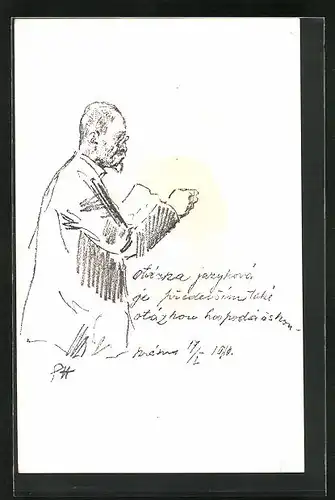 otázka jazyková
je především také
otázkou hospodářskou.
17/I 1910.
PH